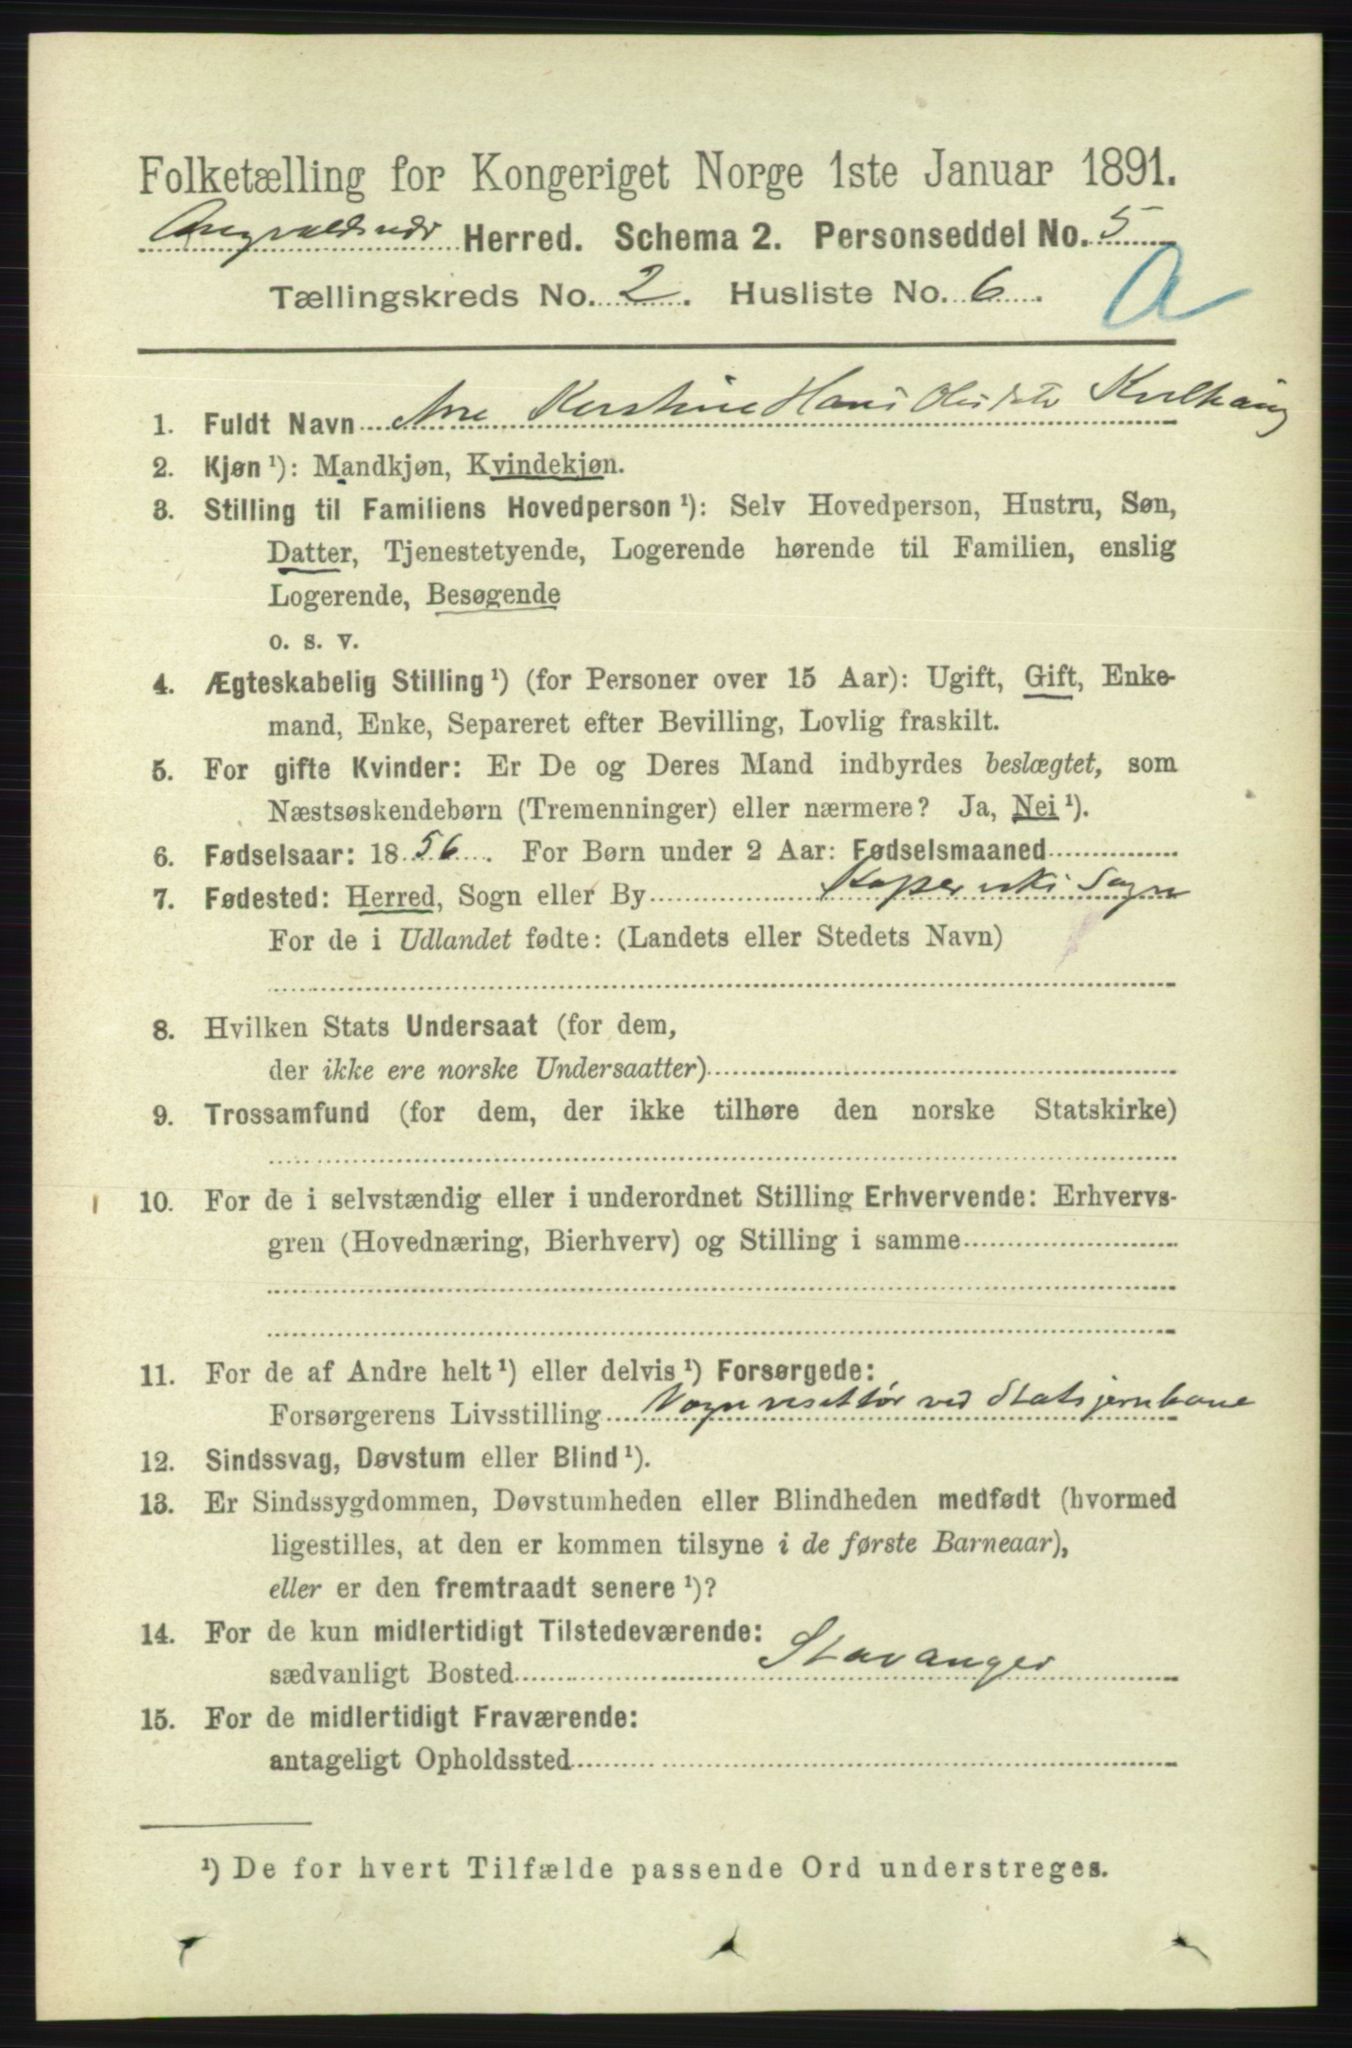 Folketælling for Kongeriget Norge 1ste Januar 1891.
Augvaldsnæs Herred. Schema 2. Personseddel No. 5
Tællingskreds No. 2. Husliste No. 6.
A
1. Fuldt Navn Ane Kirstine Hans Olsdatr
2. Kjøn ¹): Mandkjøn, Kvindekjøn.
3. Stilling til Familiens Hovedperson ¹): Selv Hovedperson, Hustru, Søn,
Datter, Tjenestetyende, Logerende hørende til Familien, enslig
Logerende, Besøgende
o. s. v.
4. Ægteskabelig Stilling ¹) (for Personer over 15 Aar): Ugift, Gift, Enke-
mand, Enke, Separeret efter Bevilling, Lovlig fraskilt.
5. For gifte Kvinder: Er De og Deres Mand indbyrdes beslægtet, som
Næstsøskendebørn (Tremenninger) eller nærmere? Ja, Nei ¹).
6. Fødselsaar: 1856. For Børn under 2 Aar: Fødselsmaaned
7. Fødested: Herred, Sogn eller By Sogn
For de i Udlandet fødte: (Landets eller Stedets Navn)
8. Hvilken Stats Undersaat (for dem,
der ikke ere norske Undersaatter)
9. Trossamfund (for dem, der ikke tilhøre den norske Statskirke)
10. For de i selvstændig eller i underordnet Stilling Erhvervende: Erhvervs-
gren (Hovednæring, Bierhverv) og Stilling i samme
11. For de af Andre helt ¹) eller delvis ¹) Forsørgede:
Forsørgerens Livsstilling Vognvisettør ved Statsjernbane
12. Sindssvag, Døvstum eller Blind ¹).
13. Er Sindssygdommen, Døvstumheden eller Blindheden medfødt (hvormed
ligestilles, at den er kommen tilsyne i de første Barneaar),
eller er den fremtraadt senere ¹)?
14. For de kun midlertidigt Tilstedeværende:
sædvanligt Bosted Stavanger
15. For de midlertidigt Fraværende:
antageligt Opholdssted
¹) De for hvert Tilfælde passende Ord understreges.